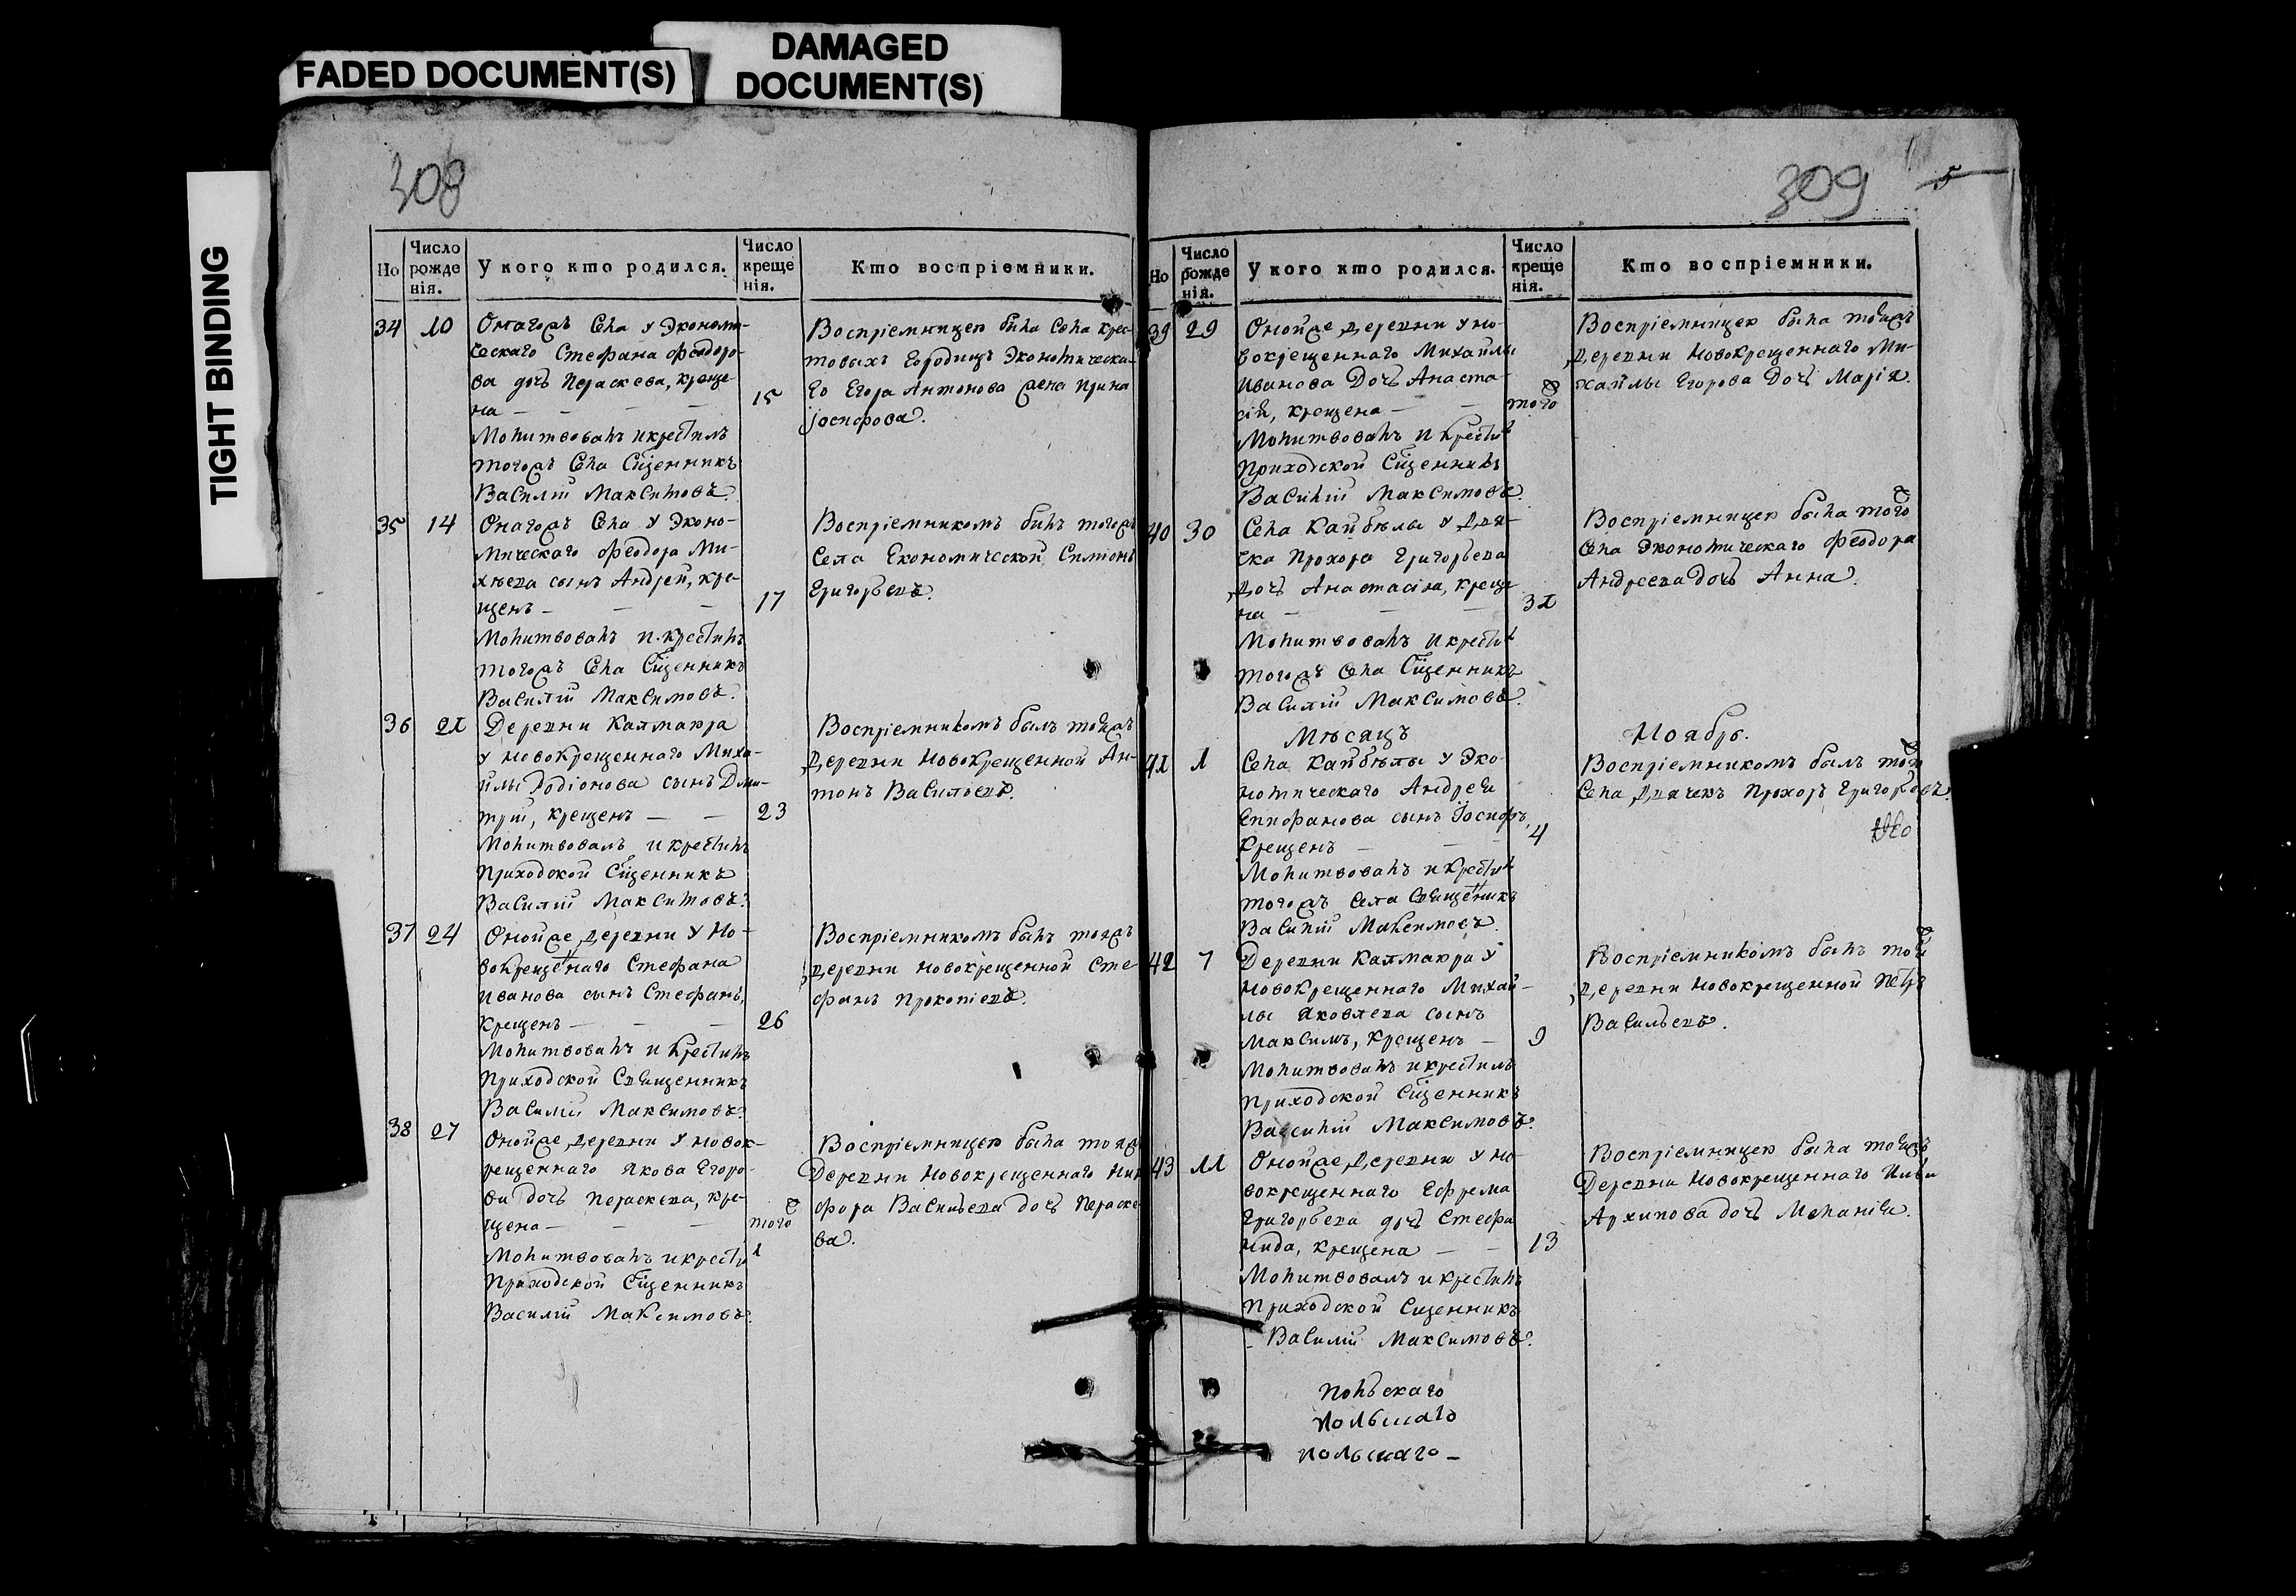 FADED DOCUMENT(S)
DAMAGED
DOCUMENT(S)
TIGHT BINDING
308
Но
Число рожде нія.
У кого кто родился.
Число креще нія.
Кто воспріемники.
34 10
Онагожъ Села у Экономи-
ческаго Стефана Феодоро-
ва дочь Параскева, креще-
на — — — — 15
Молитвовалъ и крестилъ
тогожъ Села Сщенникъ
Василій Максимовъ.
Воспріемницею была Села Крес-
товыхъ Городищь Экономическа-
го Егора Антонова жена Ирина
Іосифова.
35 14
Онагожъ Села у Эконо-
мическаго Феодора Ми-
хѣева сынъ Андрей, кре-
щенъ — — — 17
Молитвовалъ и крестилъ
тогожъ Села Сщенникъ
Василій Максимовъ.
Воспріемникомъ былъ тогожъ
Села Економической Симіонъ
Григорьевъ.
36 21
Деревни Калмаюра
у Новокрещеннаго Миха-
йлы Родіонова сынъ Дми-
трій, крещенъ — — 23
Молитвовалъ и крестилъ
Приходской Сщенникъ
Василій Максимовъ.
Воспріемникомъ былъ тойжъ
Деревни Новокрещенной Ан-
тонъ Васильевъ.
37 24
Онойже деревни у Но-
вокрещеннаго Стефана
Иванова сынъ Стефанъ,
крещенъ — — — 26
Молитвовалъ и крестилъ
Приходской Священникъ
Василій Максимовъ.
Воспріемникомъ былъ тояжъ
деревни Новокрещенной Сте-
фанъ Прокопіевъ.
38 27
Онойже деревни у новок-
рещеннаго Якова Егоро-
ва дочь Параскева, кре-
щена — — — того
Молитвовалъ и крестил
Приходской Сщенникъ
Василій Максимовъ.
Воспріемницею была тояж
Деревни Новокрещеннаго Ник
фора Васильева дочь Параске
ва.
309 5
Но
Число рожде нія.
У кого кто родился.
Число креще нія.
Кто воспріемники.
39 29
Онойже деревни у но-
вокрещеннаго Михайлы
Иванова дочь Анаста-
сія, крещена — — того
Молитвовалъ и крестил
Приходской Сщенникъ
Василій Максимовъ.
Воспріемницею была тойжъ
деревни Новокрещеннаго Ми-
хайлы Егорова дочь Марія.
40 30
Села Кайбѣлы у Дья-
чка Прохора Григорьева
дочь Анастасіа, креще
на — — — 31
Молитвовалъ и крестил
тогожъ Села Сщенникъ
Василій Максимовъ.
Воспріемницею была того
Села Экономическаго Феодора
Андреева дочь Анна.
Мѣсяцъ Ноябрь.
41 1
Села Кайбѣлы у Эко-
номическаго Андрея
Епифанова сынъ Іосифъ,
крещенъ — — — 4
Молитвовалъ и крестил
тогожъ Села Священникъ
Василій Максимовъ.
Воспріемникомъ былъ того
Села Дьячекъ Прохоръ Григорьевъ.
42 7
Деревни Калмаюра у
новокрещеннаго Михай-
лы Яковлева сынъ
Максимъ, крещенъ — 9
Молитвовалъ и крестилъ
Приходской Сщенникъ
Василій Максимовъ.
Воспріемникомъ былъ той
деревни Новокрещенной Петръ
Васильевъ.
43 11
Онойже деревни у но-
вокрещеннаго Ефрема
Григорьева дочь Стефа
нида, крещена — — 13
Молитвовалъ и крестилъ
Приходской Сщенникъ
Василій Максимовъ.
Воспріемницею была тойжъ
Деревни Новокрещеннаго Ильи
Архипова дочь Меланія.
польскаго
польшаго
польшаго —